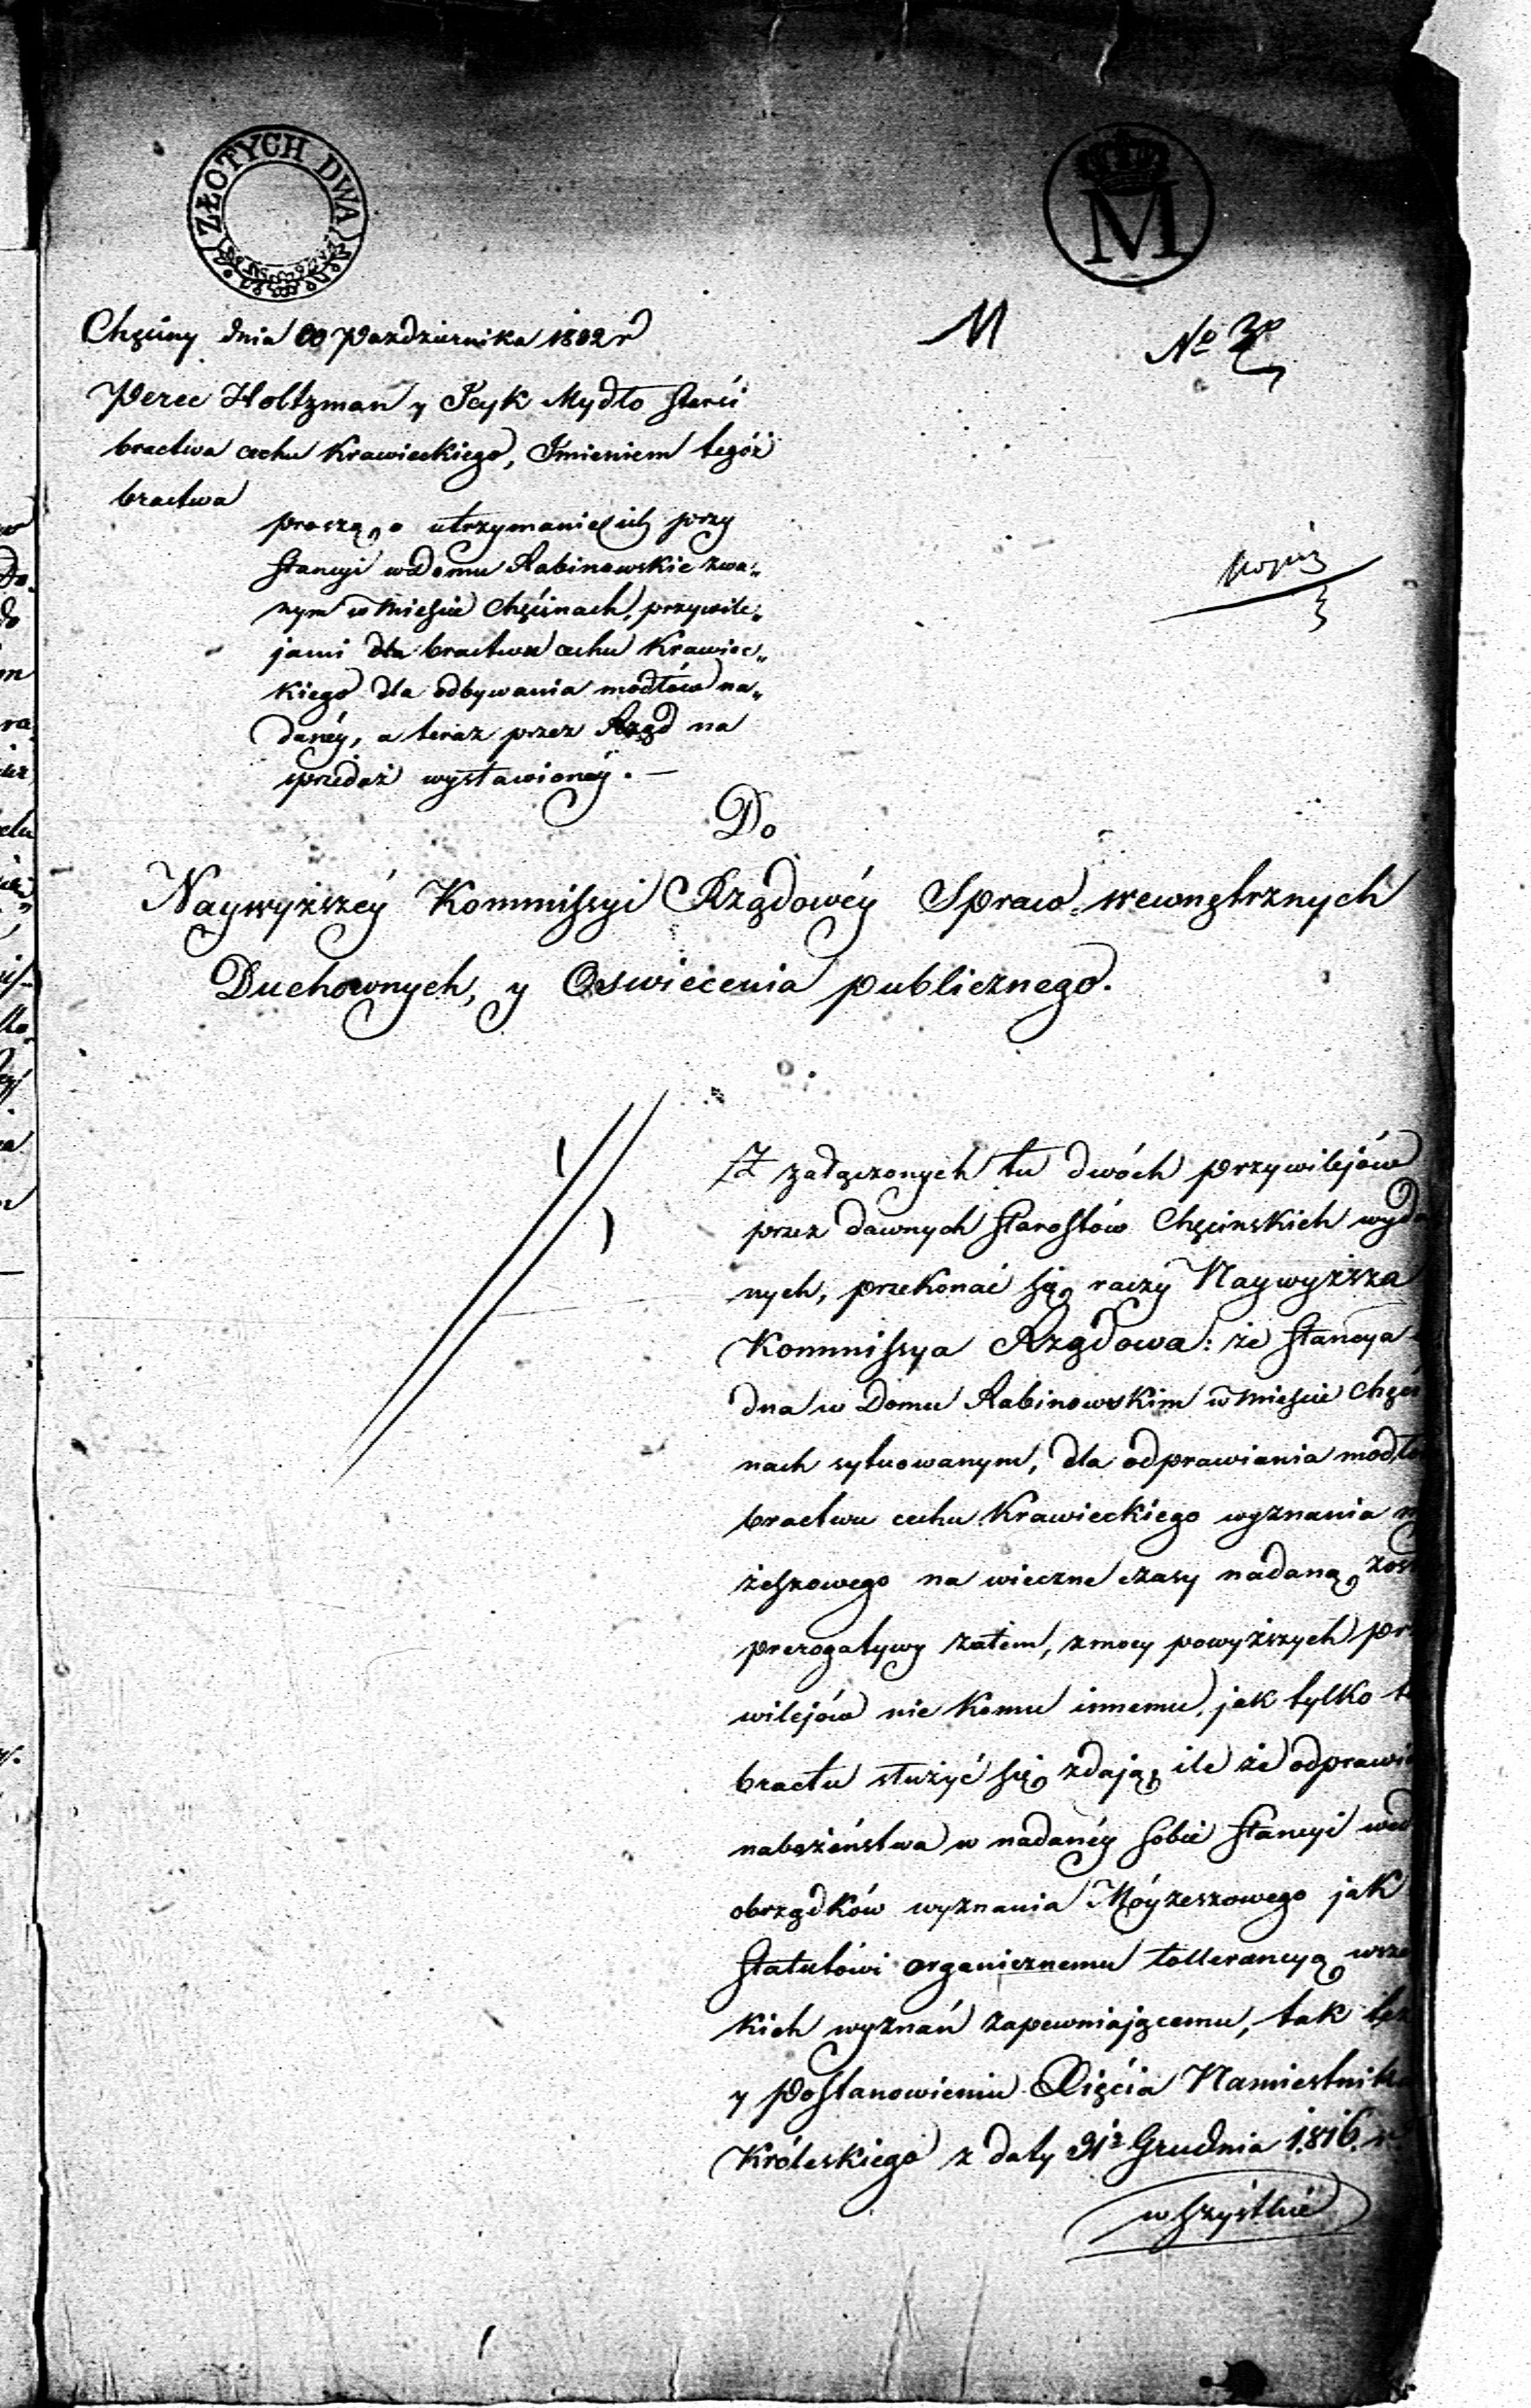 ZŁOTYCH DWA
M
Chęciny dnia Października 18 2 r
M
No
Perec Holtzman y Icyk Mydło starsi
bractwa cechu Krawieckiego, Imieniem tegoż
bractwa
proszą, o utrzymanie ich przy
stancyi w Domu Rabinowskie zwa„
nym w Mieście Chęcinach, przywile„
jami dla bractwa cechu Krawiec„
kiego dla odbywania modłów na„
daney, a teraz przez Rząd na
sprzedaż wystawioney. —
Do
Naywyższéy Kommissyi Rządowéy Spraw wewnętrznych
Duchownych, y Oswiecenia publicznego.
Z załączonych tu dwóch przywilejów
przez dawnych Starostów Chęcinskich wyda
nych, przekonać się raczy Naywyższa
Kommissya Rządowa: że stancya
dna w Domu Rabinowskim w Mieście Chęci
nach sytuowanym, dla odprawiania modłó
bractwu cechu Krawieckiego wyznania
żeszowego na wieczne czasy nadaną zos
prerogatywy zatem, z mocy powyższych prz
wilejów nie komu innemu, jak tylko te
bractu służyć się zdają, ile że odprawia
nabożeństwa w nadanéy sobie stancyi wed
obrządków wyznania Móyżeszowego jak
Statutówi organicznemu tollerancyą wsze
kich wyznań zapewniającemu, tak też
y Postanowieniu Xięcia Namiestnika
Króleskiego z daty Grudnia 1816. r.
wszystkie